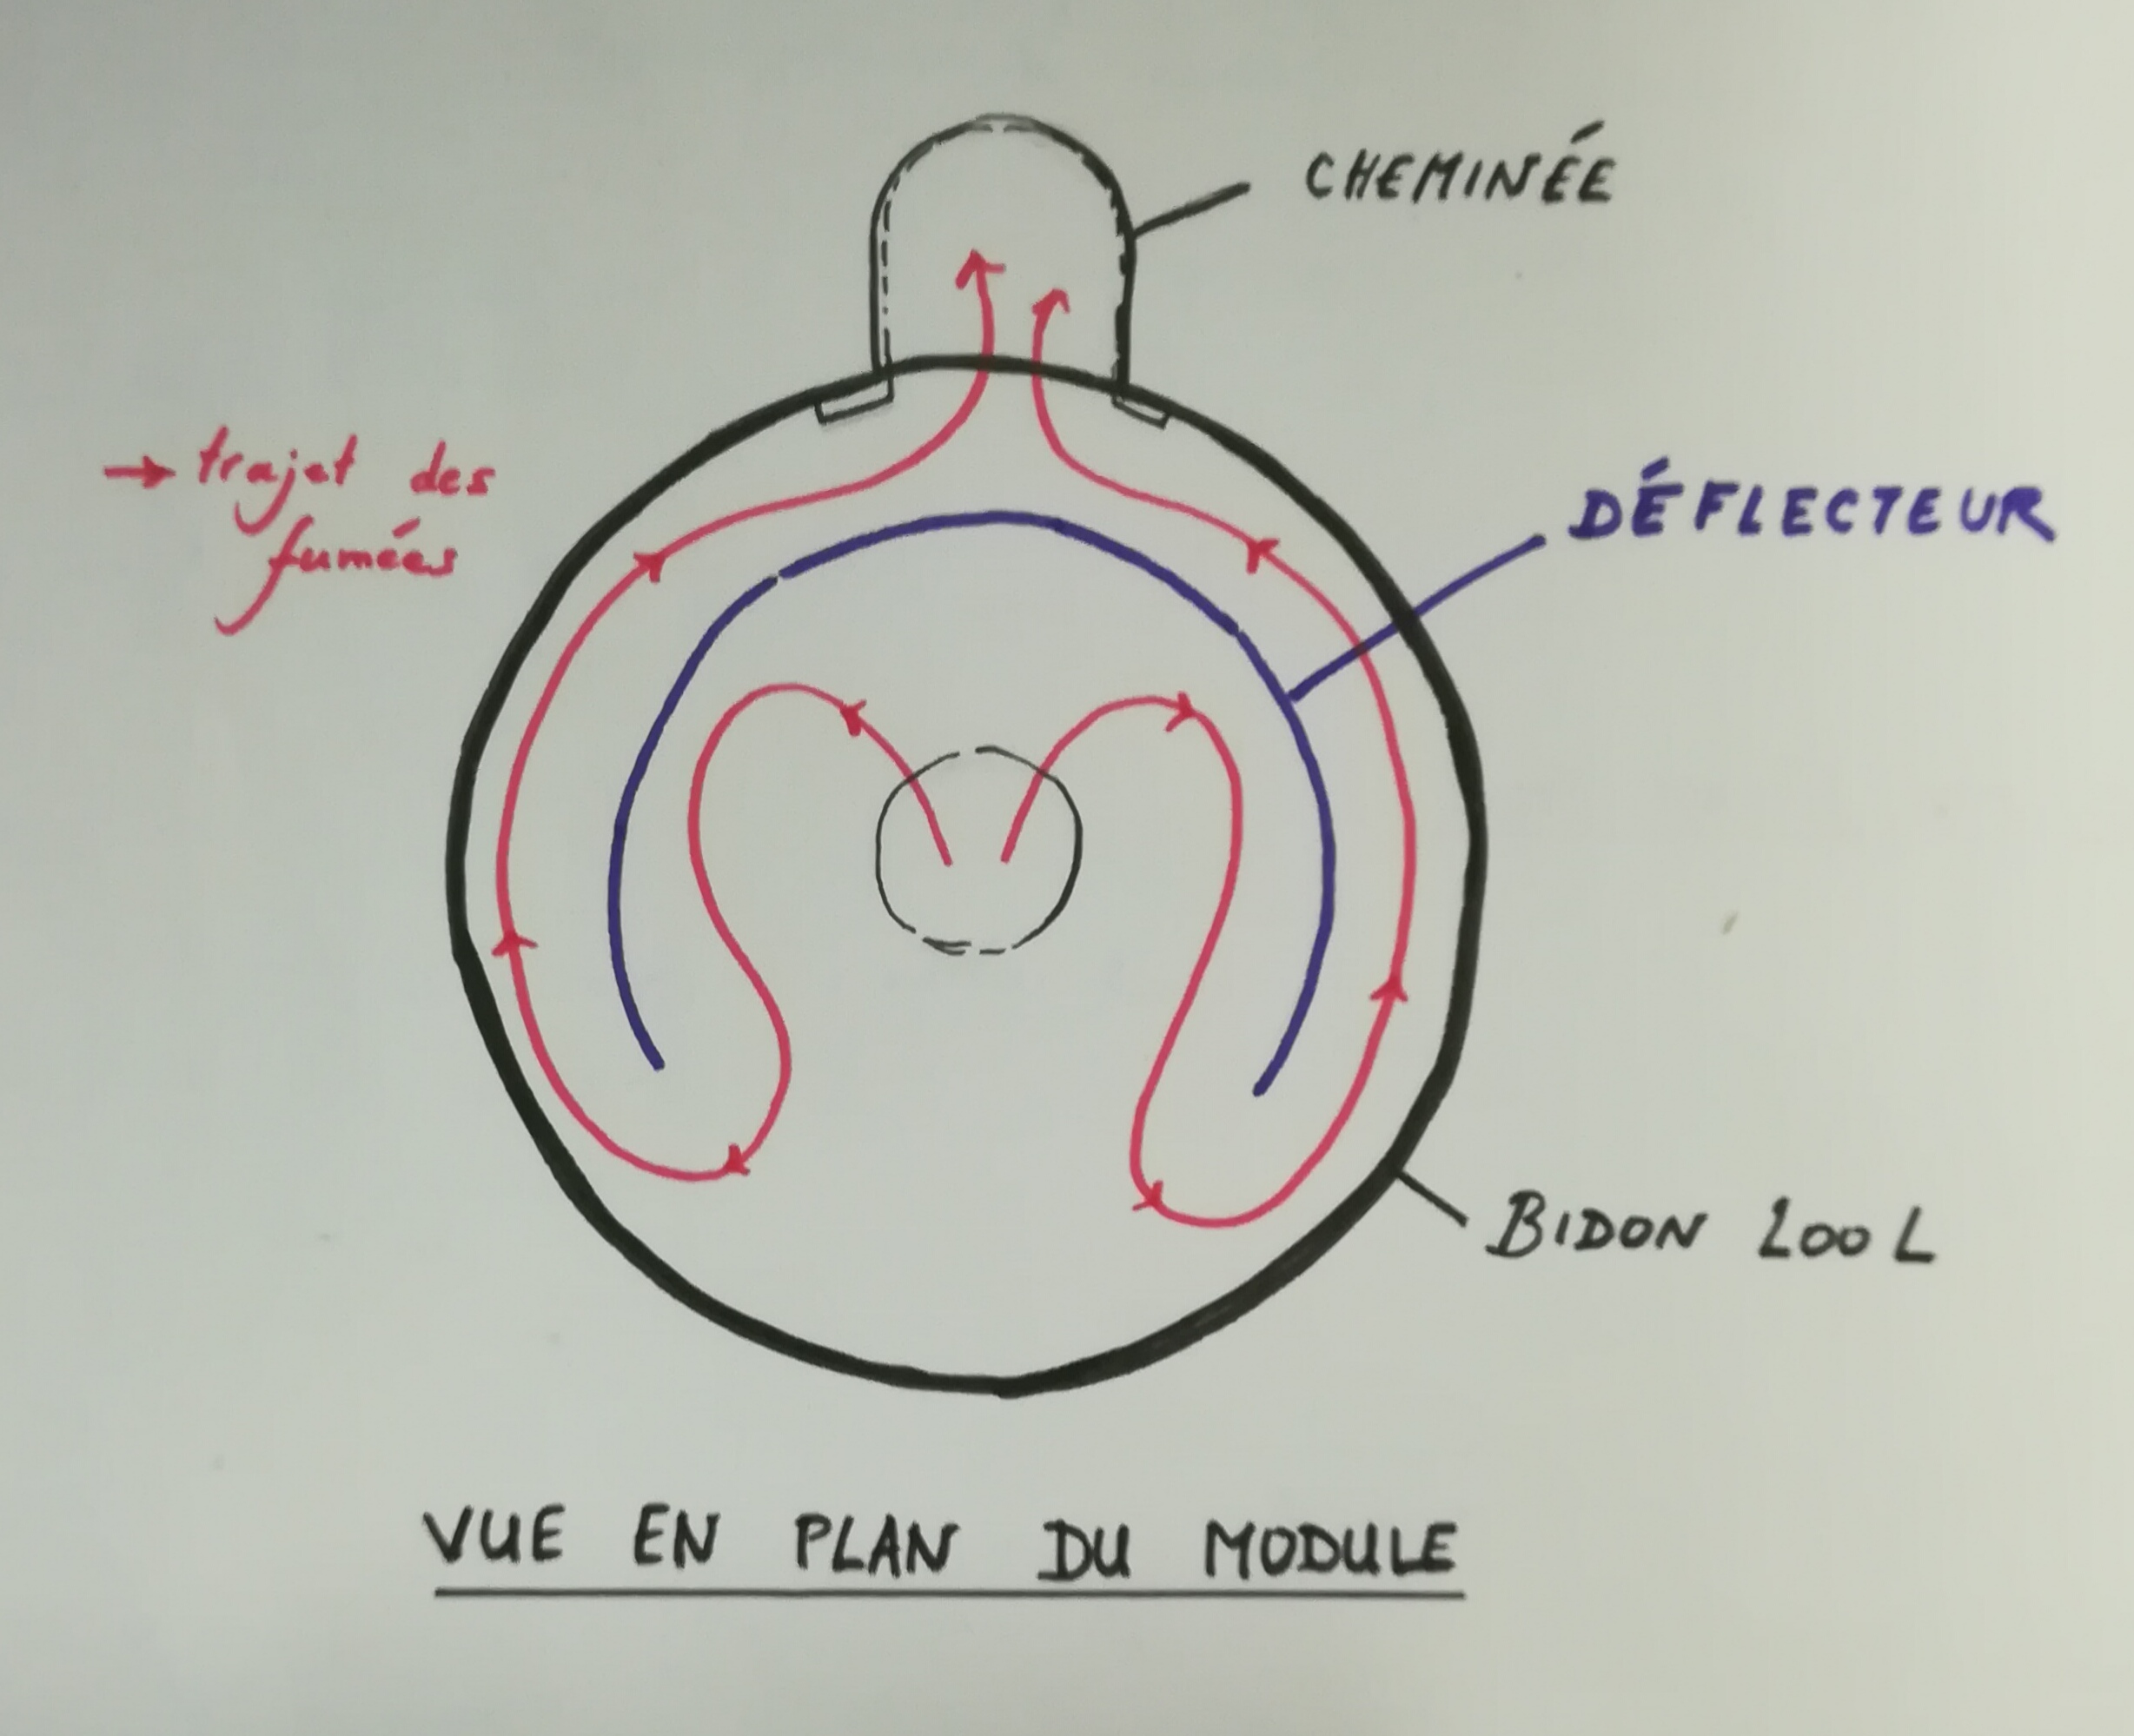 CHEMINÉE
→ trajet des
fumées
DÉFLECTEUR
BIDON 200 L
VUE EN PLAN DU MODULE